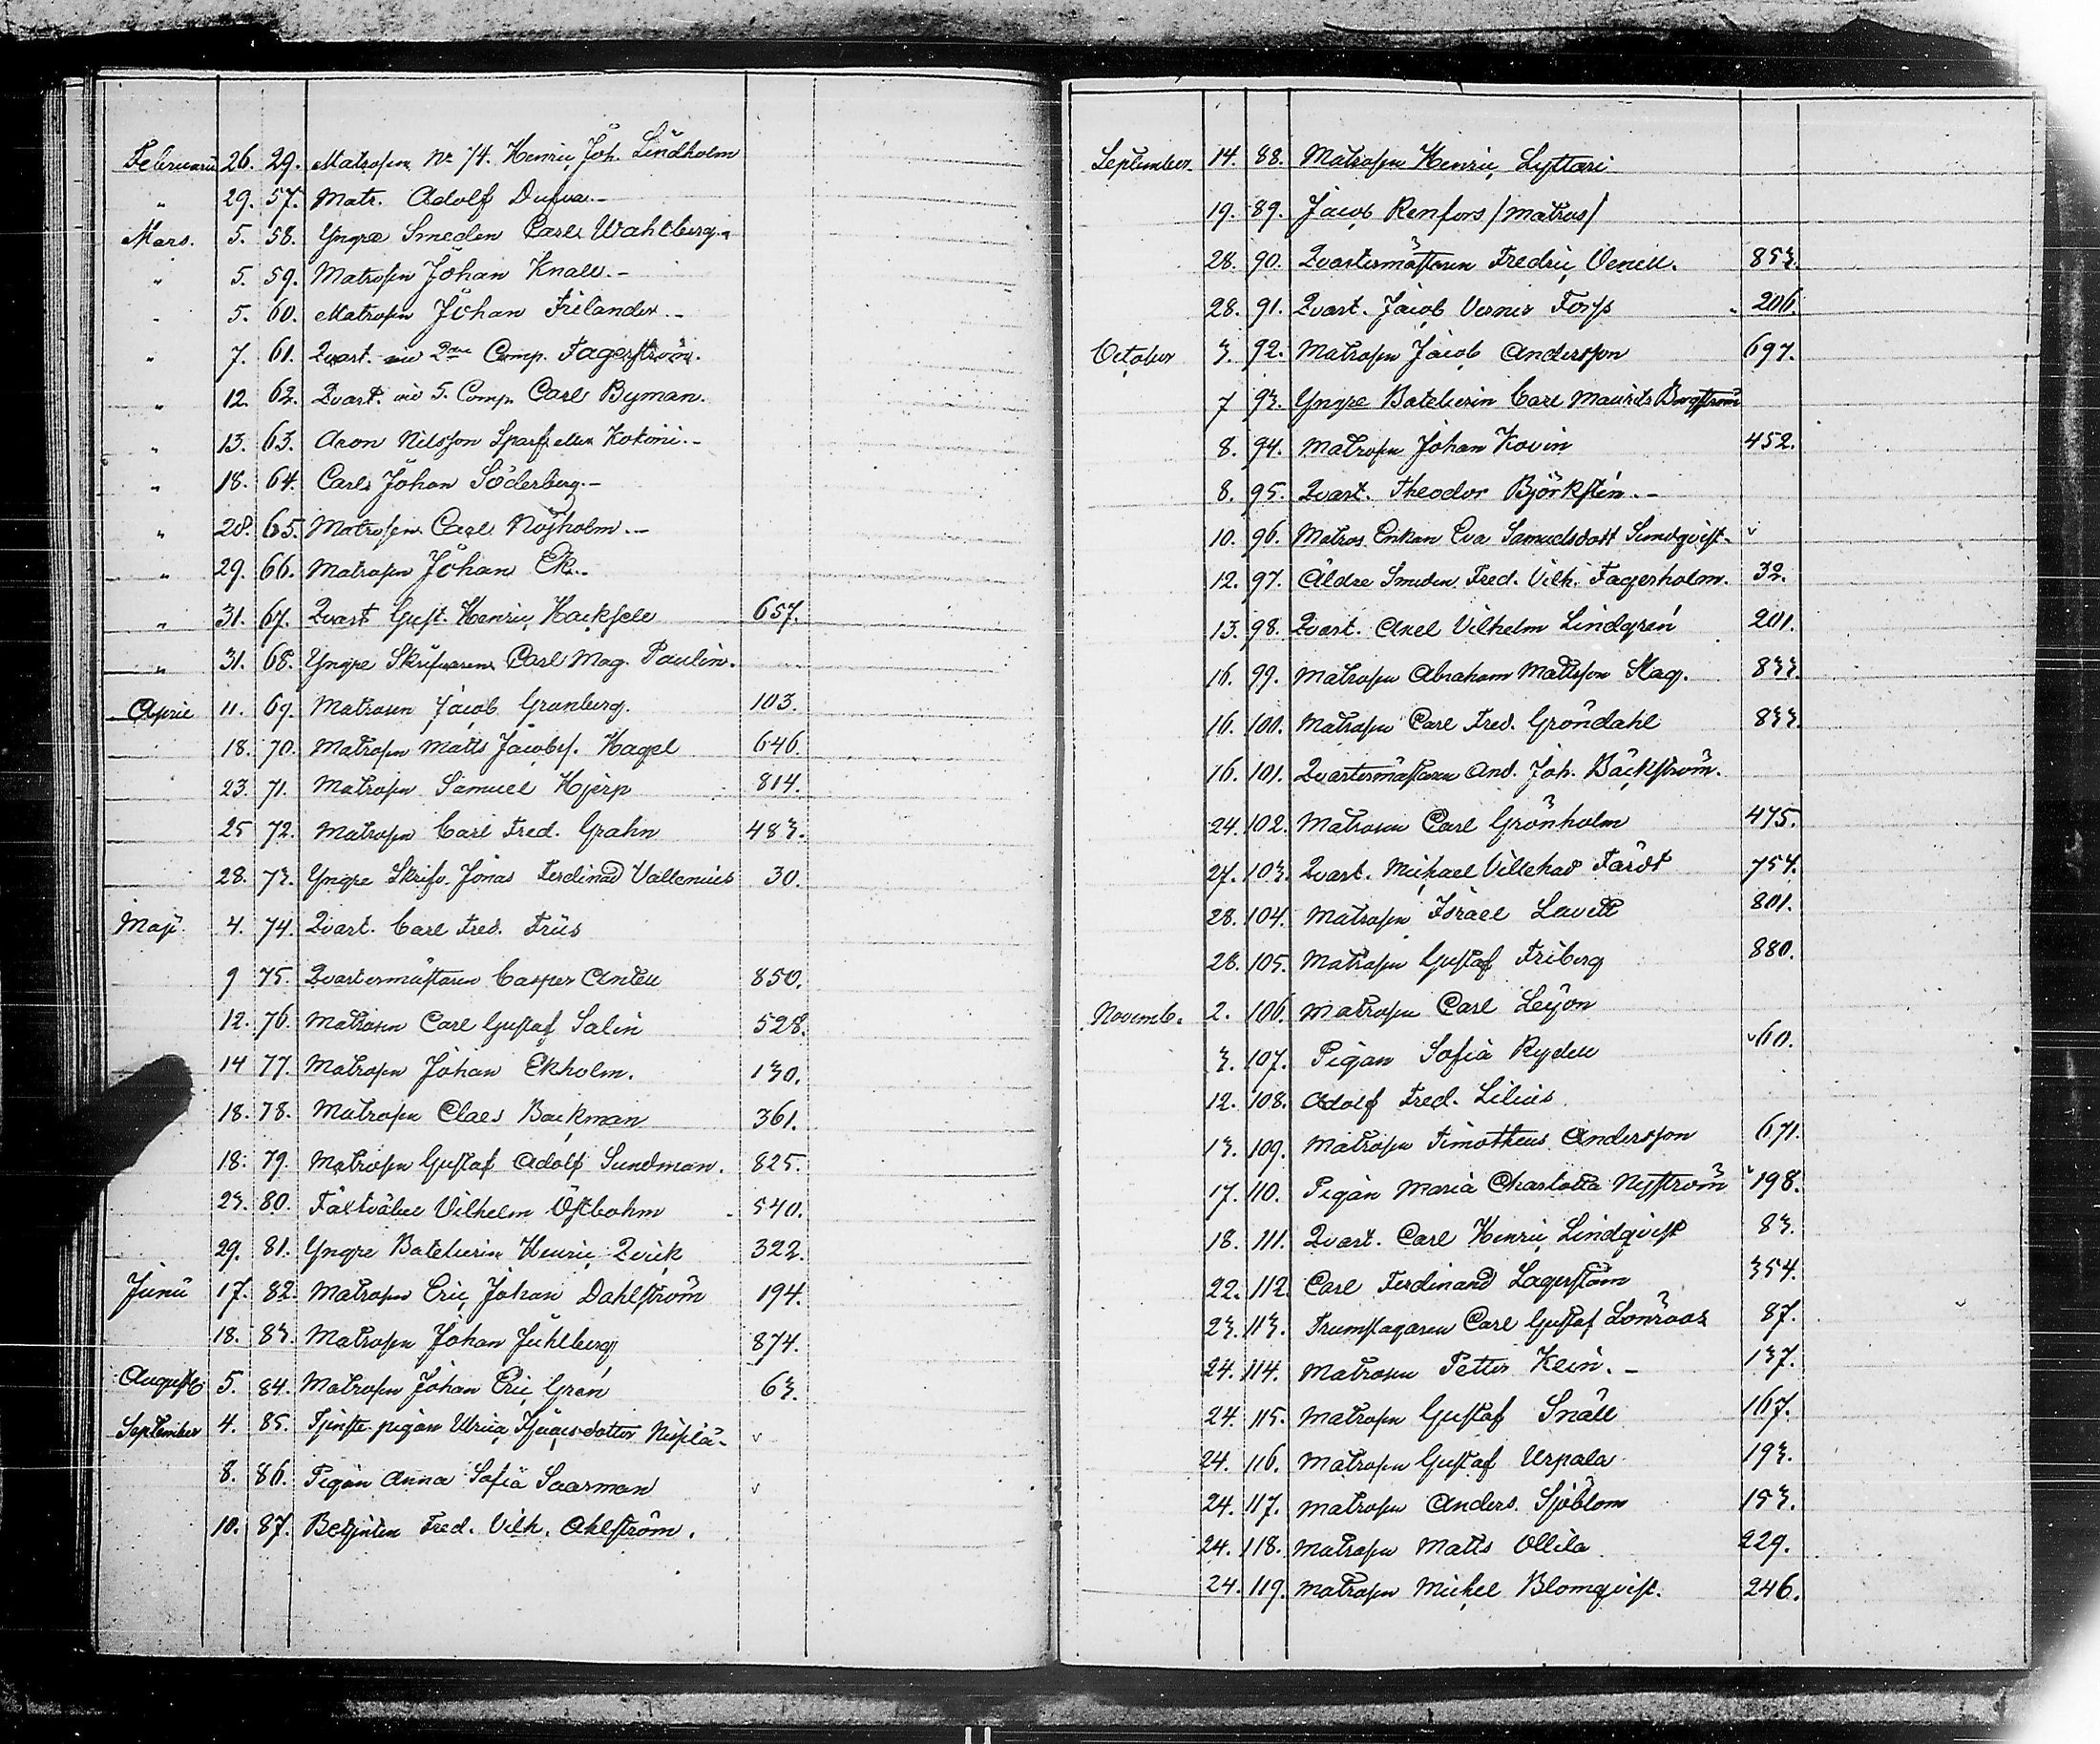 Februarii 26. 29. Matrosen No 74. Henric Joh. Lindholm
" 29. 57. Matr. Adolf Dufva.-
Mars. 5. 58. Yngre Smeden Carl Wahlberg.-
" 5. 59. Matrosen Johan Knall.-
" 5. 60. Matrosen Johan Frilander.-
" 7. 61. Qvart. vid 2dra Comp. Fagerström.
" 12. 62. Qvart. vid 5. Comp. Carl Byman.
" 13. 63. Aron Nilsson Sparf eller Kokoni.-
" 18. 64. Carl Johan Söderberg.-
" 28. 65. Matrosen Carl Nöjholm.-
" 29. 66. Matrosen Johan Ek.-
" 31. 67. Qvart Gust. Henric Hacksell 657.
" 31. 68. Yngre Skrifvaren Carl Mag. Paulin.
April 11. 69. Matrosen Jacob Granberg. 103.
18. 70. Matrosen Matts Jacobs. Hagel 646.
23. 71. Matrosen Samuel Hjerp 814.
25 72. Matrosen Carl Fred. Grahn 483.
28. 73. Yngre Skrifv. Jonas Ferdinad Vallenius 30.
Maji 4. 74. Qvart. Carl Fred. Friis
9 75. Qvartermästaren Casper Antell 850.
12. 76. Matrosen Carl Gustaf Salin 528.
14 77. Matrosen Johan Ekholm. 130.
18. 78. Matrosen Claes Backman 361.
18. 79. Matrosen Gustaf Adolf Sundman. 825.
23. 80. Fältväbel Vilhelm Östbohm 540.
29. 81. Yngre Batelierin Henric Qvick 322.
Junii 17. 82. Matrosen Eric Johan Dahlström 194.
18. 83. Matrosen Johan Juhlberg 874.
Augusti 5. 84. Matrosen Johan Eric Grén 63.
September 4. 85. Tjenste pigan Ulrica dotter v
8. 86. Pigan Anna Sofia Saarman v
10. 87. Betjenten Fred. Vilh. Ahlström.
September. 14. 88. Matrosen Henric Lyttari
19. 89. Jacob Renfors /Matros/
28. 90. Qvartermästaren Fredric Venell. 853.
28. 91. Qvart. Jacob Verner Forss 206.
October 3. 92. Matrosen Jacob Andersson 697.
7 93. Yngre Batelierin Carl Maurits Bergström
8. 94. Matrosen Johan Kovin 452.
8. 95. Qvart. Theodor Björkstén.-
10. 96. Matros Enkan Eva Samuelsdott Sundqvist v
12. 97. Äldre Smeden Fred. Vilh. Fagerholm. 32.
13. 98. Qvart. Axel Vilhelm Lindgren 201.
16. 99. Matrosen Abraham Mattsson Stag. 833.
16. 100. Matrosen Carl Fred. Gröndahl 833.
16. 101. Qvartermästaren And. Joh. Bäckström.
24. 102. Matrosen Carl Grönholm 475.
27. 103. Qvart. Michael Villehad Färdt 754.
28. 104. Matrosen Israel Lavill 801.
28. 105. Matrosen Gustaf Friberg 880.
Novemb. 2. 106. Matrosen Carl Leijon
3. 107. Pigan Sofia Rydell v 60.
12. 108. Adolf Fred. Lilius
13. 109. Matrosen Timotheus Andersson 671.
17. 110. Pigan Maria Charlotta Nyström v 198.
18. 111. Qvart. Carl Henric Lindqvist 83.
22. 112. Carl Ferdinand Lagerstöm 354.
23. 113. Trumslagaren Carl Gustaf Lönroos 87.
24. 114. Matrosen Petter Klein.- 137.
24. 115. Matrosen Gustaf Snäll 167.
24. 116. Matrosen Gustaf Urpala 193.
24. 117. Matrosen Anders Sjöblom 153.
24. 118. Matrosen Matts Ollila 229.
24. 119. Matrosen Michel Blomqvist. 246.